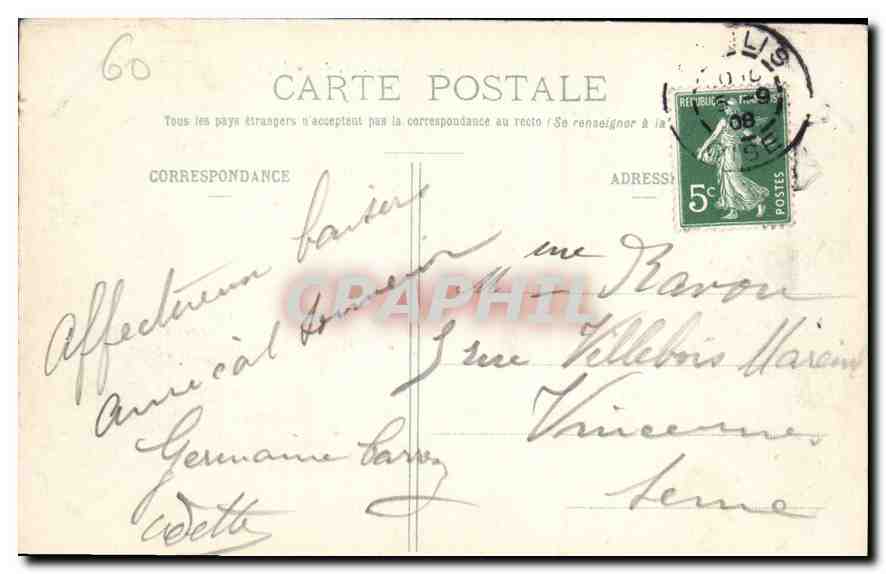 60
CARTE POSTALE
Tous les pays étrangers n'acceptent pas la correspondance au recto (Se renseigner à la
CORRESPONDANCE
ADRESSE
LIS
9
08
OISE
REPUBLIQUE FRANÇAISE
5c
POSTES
CPAPHIL
Affectueux baisers
Amical souvenir
Germaine Carrez
Odette
Mme Ravon
5 rue Villebois Mareuil
Vincennes
Seine